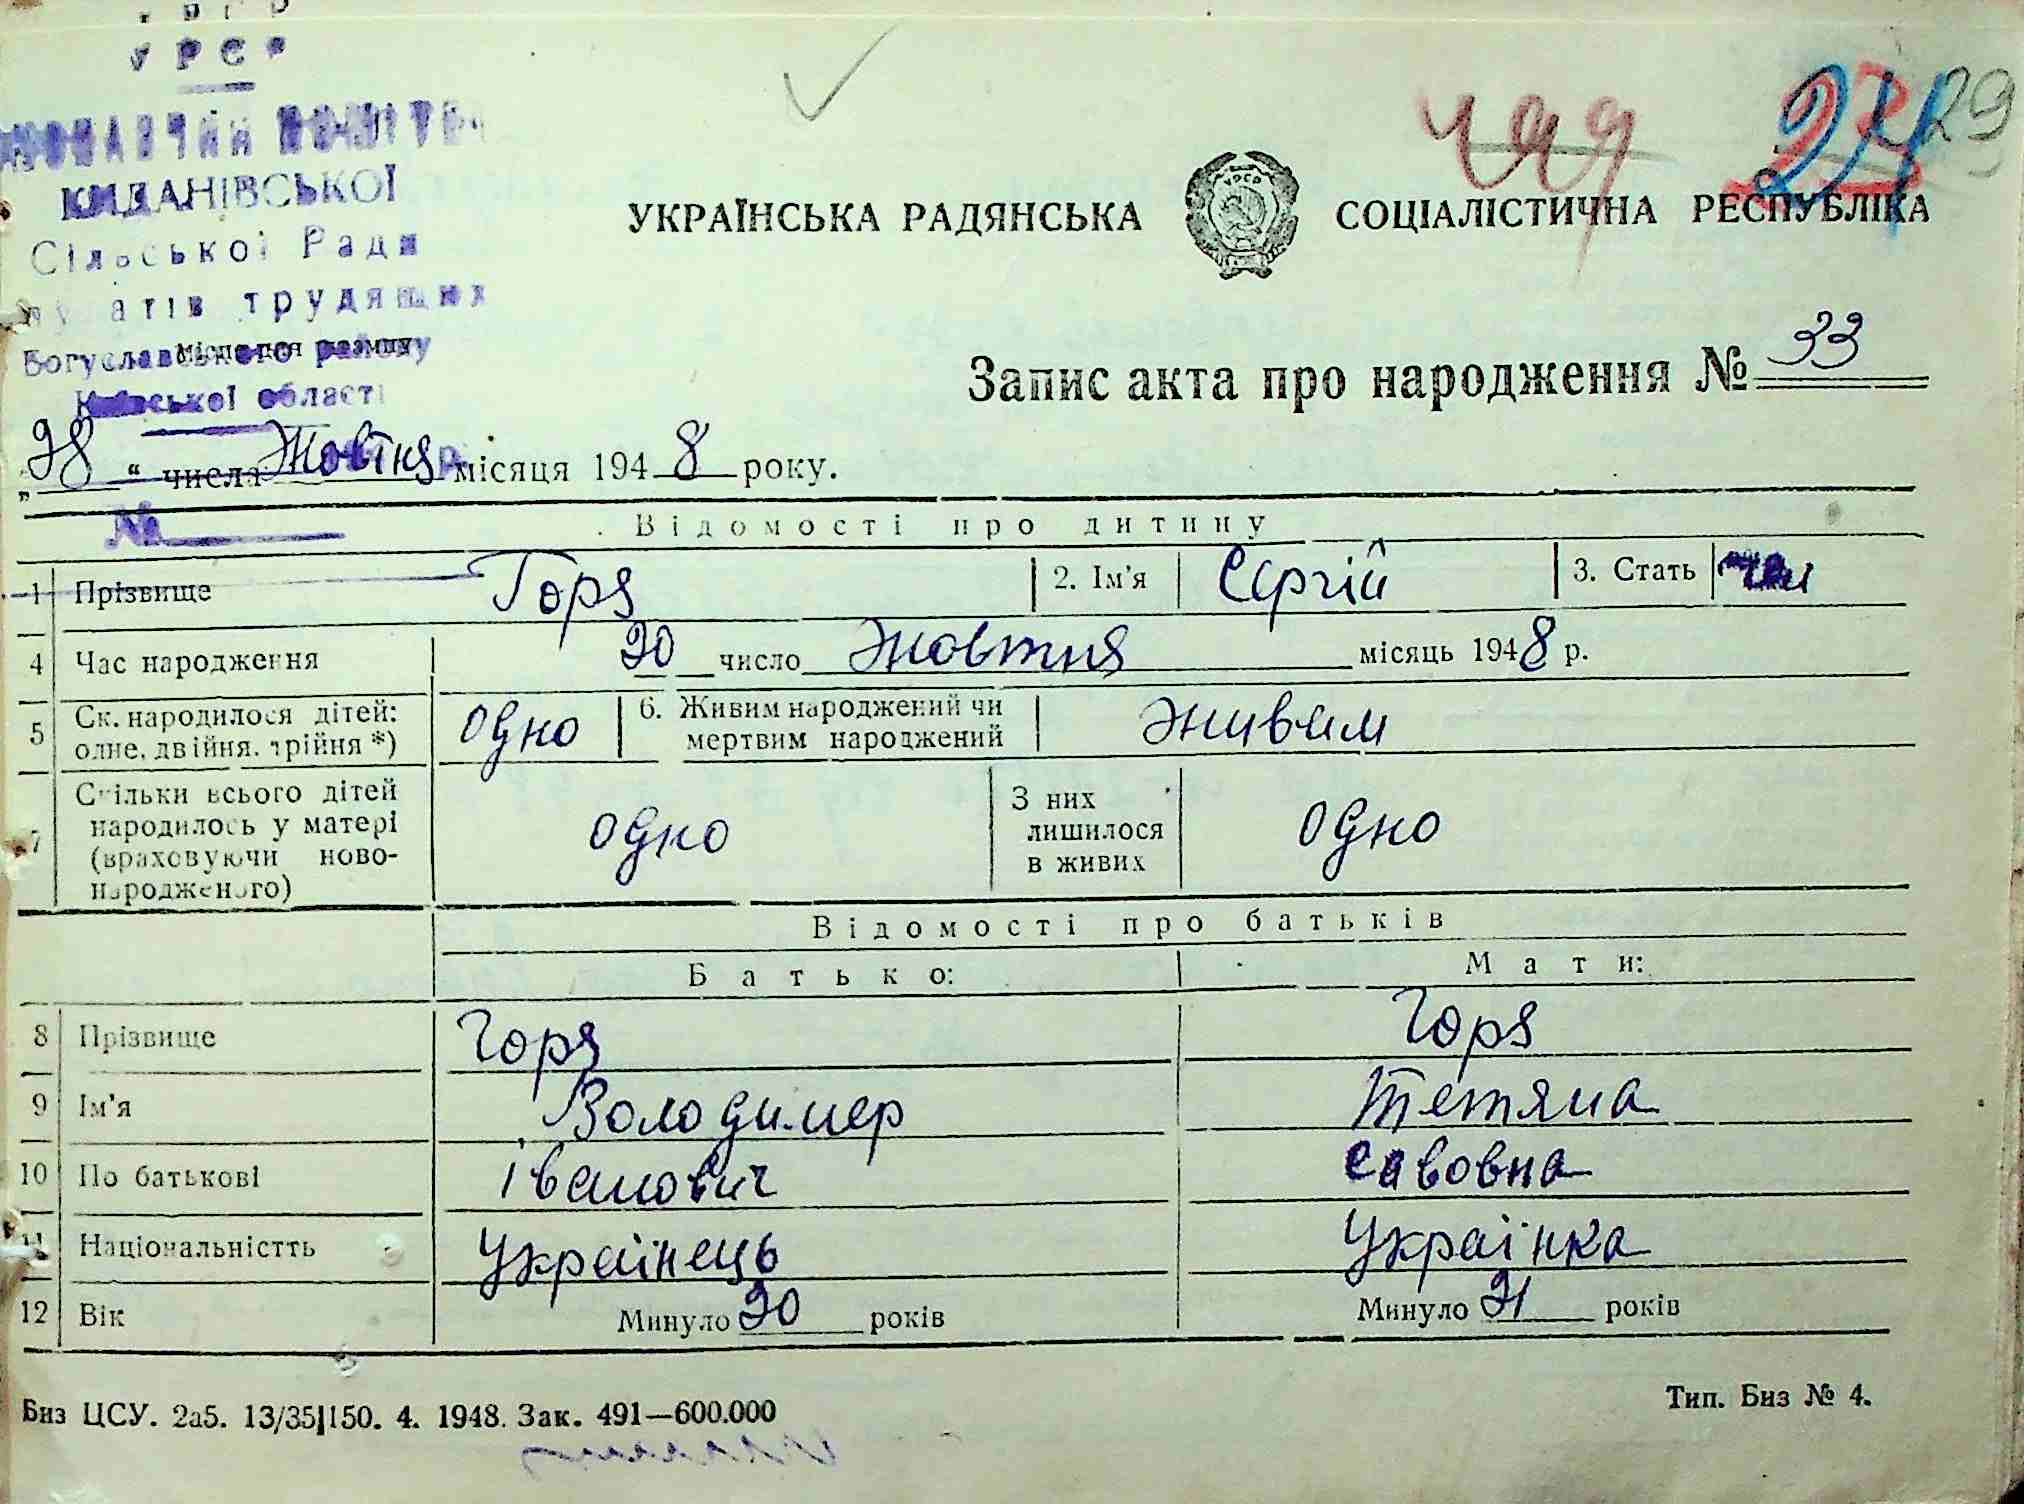 УРСР
ВИКОНАВЧИЙ КОМІТЕТ
КИДАНІВСЬКОЇ
Сільської Ради
депутатів трудящих
Богуславського району
Київської області
чол 29
УКРАЇНСЬКА РАДЯНСЬКА СОЦІАЛІСТИЧНА РЕСПУБЛІКА
Запис акта про народження № 33
„28“ числа Жовтня місяця 1948 року.
№
Відомості про дитину
1 Прізвище Горя 2. Ім'я Сергій 3. Стать чол
4 Час народження 20 число Жовтня місяць 1948 р.
5 Ск. народилося дітей: одне, двійня, трійня *) одно 6. Живим народжений чи мертвим народжений живим
7 Скільки всього дітей народилось у матері (враховуючи ново-народженого) одно З них лишилося в живих одно
Відомості про батьків
Батько: Мати:
8 Прізвище Горя Горя
9 Ім'я Володимер Тетяна
10 По батькові Іванович Савовна
11 Національністть Українець Українка
12 Вік Минуло 20 років Минуло 21 років
Биз ЦСУ. 2а5. 13/35|150. 4. 1948. Зак. 491—600.000
Тип. Биз № 4.